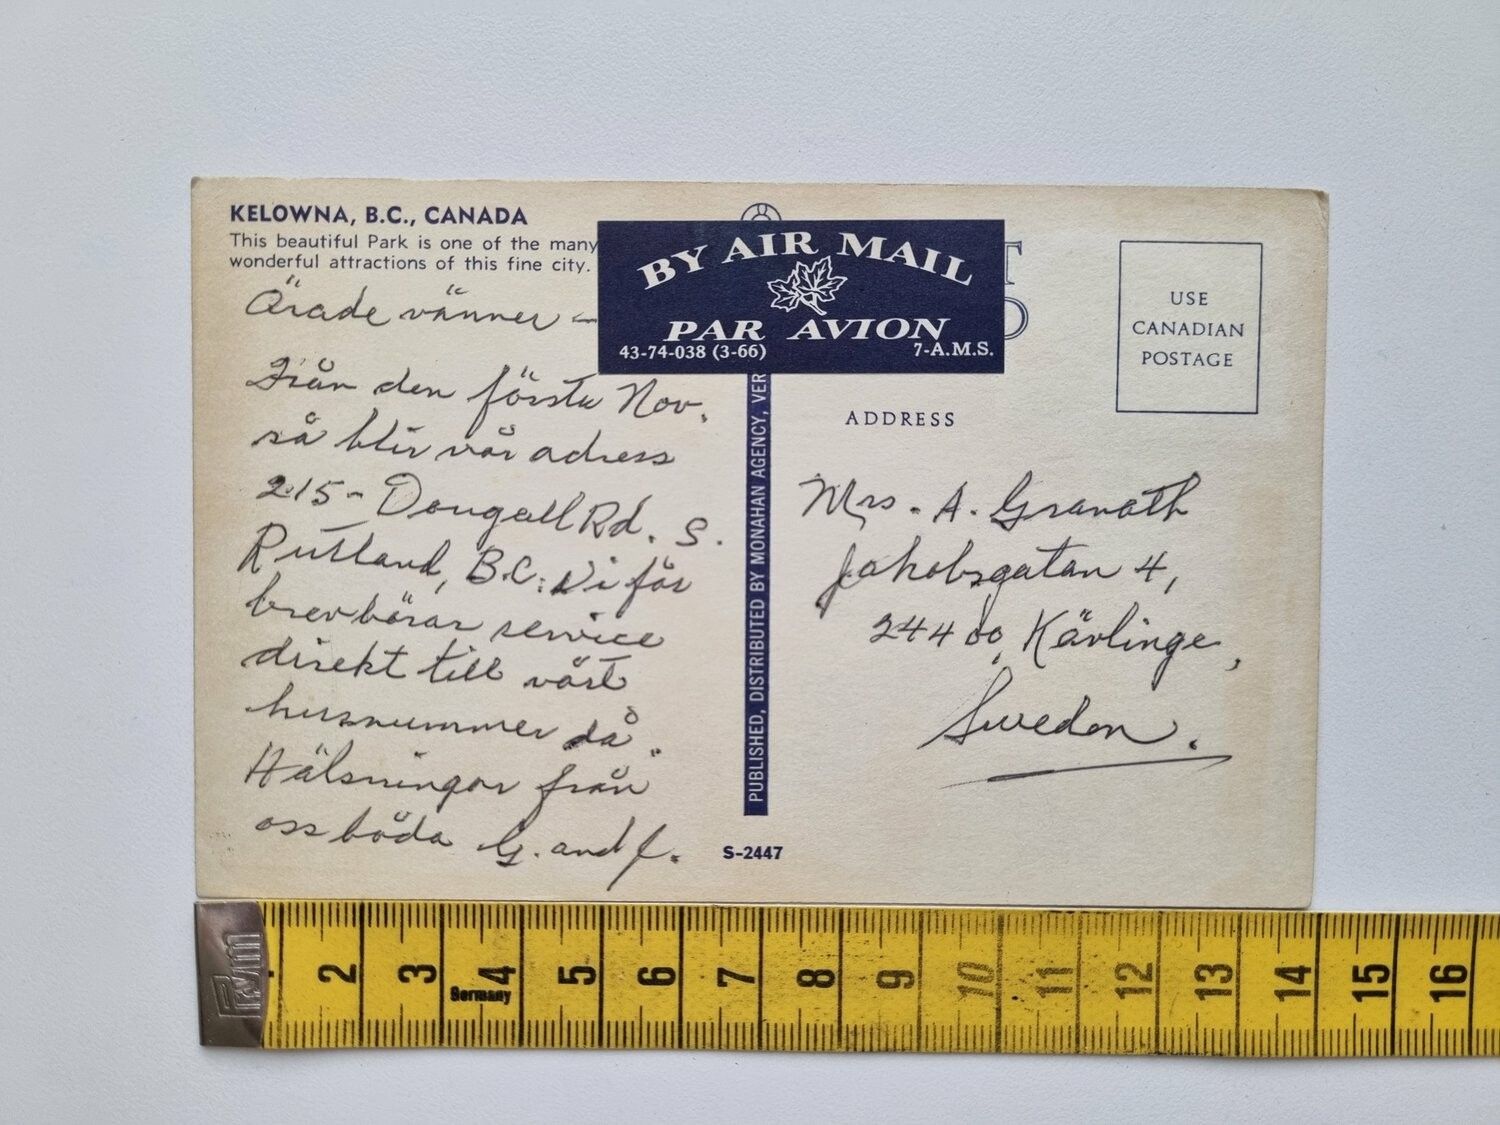 KELOWNA, B.C., CANADA
This beautiful Park is one of the many
wonderful attractions of this fine city.
Ärade vänner –
Från den första Nov.
så blir vår adress
215 – Dougall Rd. S.
Rutland, B.C. Vi får
brevbärar service
direkt till vårt
husnummer då.
Hälsningar från
oss båda G. and J.
BY AIR MAIL
PAR AVION
43-74-038 (3-66)
7-A.M.S.
PUBLISHED, DISTRIBUTED BY MONAHAN AGENCY, VER
S-2447
USE
CANADIAN
POSTAGE
ADDRESS
Mrs. A. Granath
Jakobsgatan 4,
244 00, Kävlinge,
Sweden.
Germany
2 3 4 5 6 7 8 9 10 11 12 13 14 15 16